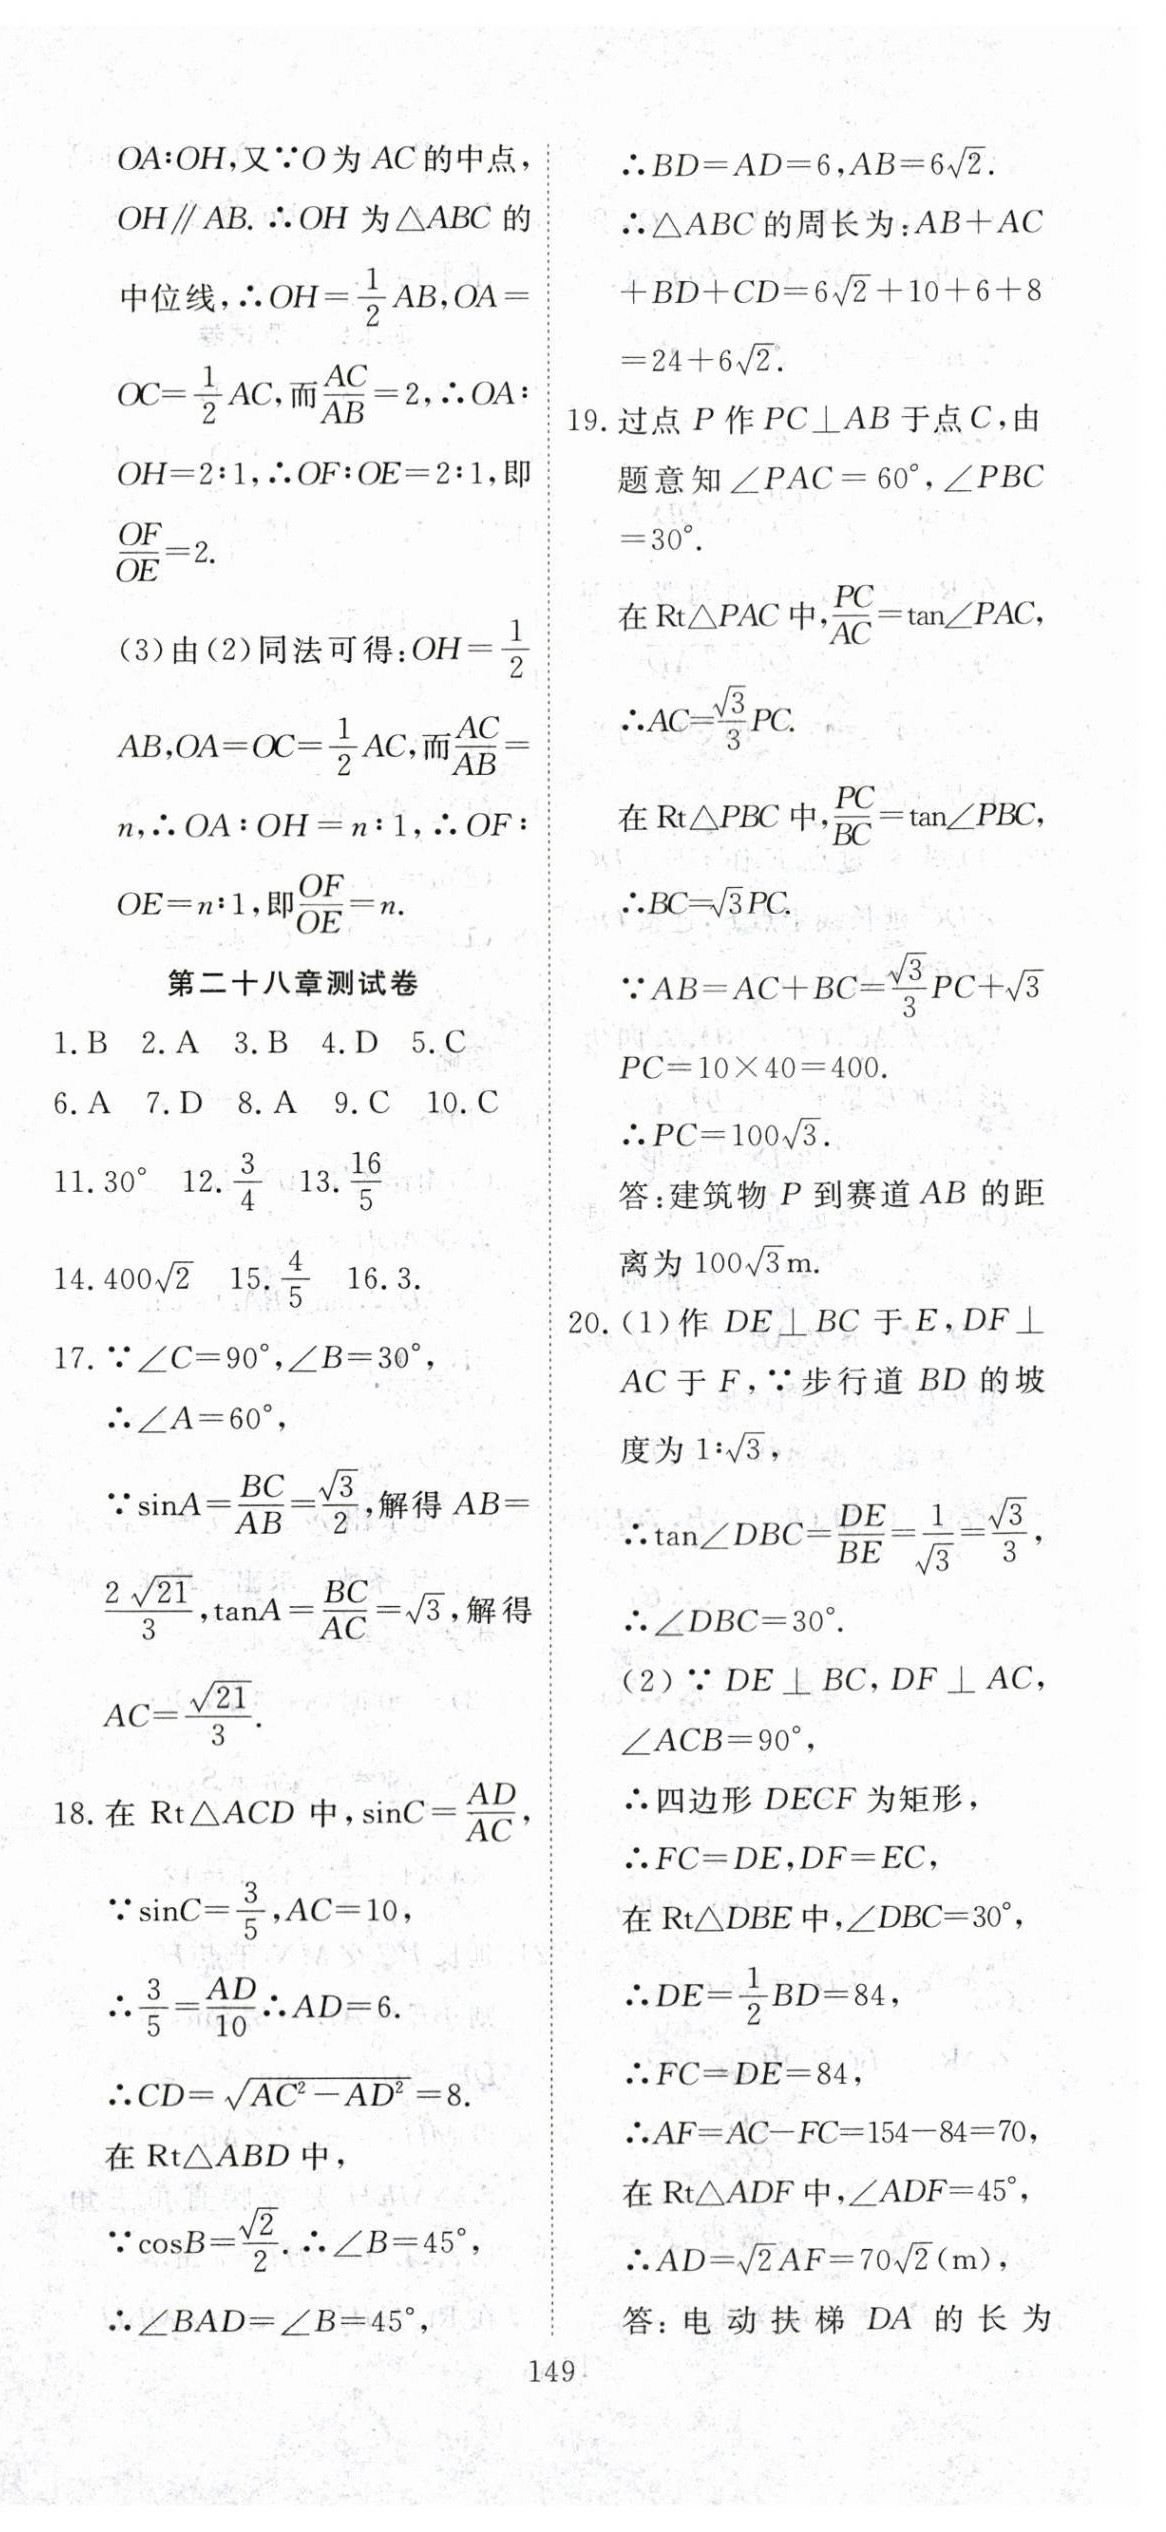 OA∶OH,又∵O为 AC 的中点,
OH∥AB. ∴OH 为△ABC 的
中位线,∴OH=\frac{1}{2}AB,OA=
OC=\frac{1}{2}AC,而\frac{AC}{AB}=2,∴OA∶
OH=2∶1,∴OF∶OE=2∶1,即
\frac{OF}{OE}=2.
(3)由(2)同法可得:OH=\frac{1}{2}
AB,OA=OC=\frac{1}{2}AC,而\frac{AC}{AB}=
n,∴OA∶OH=n∶1,∴OF∶
OE=n∶1,即\frac{OF}{OE}=n.
第二十八章测试卷
1.B 2.A 3.B 4.D 5.C
6.A 7.D 8.A 9.C 10.C
11.30° 12.\frac{3}{4} 13.\frac{16}{5}
14.400√2 15.\frac{4}{5} 16.3.
17.∵∠C=90°,∠B=30°,
∴∠A=60°,
∵sinA=\frac{BC}{AB}=\frac{√3}{2},解得 AB=
\frac{2√21}{3},tanA=\frac{BC}{AC}=√3,解得
AC=\frac{√21}{3}.
18.在 Rt△ACD 中,sinC=\frac{AD}{AC},
∵sinC=\frac{3}{5},AC=10,
∴\frac{3}{5}=\frac{AD}{10}∴AD=6.
∴CD=\sqrt{AC²-AD²}=8.
在 Rt△ABD 中,
∵cosB=\frac{√2}{2}.∴∠B=45°,
∴∠BAD=∠B=45°,
∴BD=AD=6,AB=6√2.
∴△ABC 的周长为:AB+AC
+BD+CD=6√2+10+6+8
=24+6√2.
19.过点 P 作 PC⊥AB 于点 C,由
题意知∠PAC=60°,∠PBC
=30°.
在 Rt△PAC 中,\frac{PC}{AC}=tan∠PAC,
∴AC=\frac{√3}{3}PC.
在 Rt△PBC 中,\frac{PC}{BC}=tan∠PBC,
∴BC=√3PC.
∵AB=AC+BC=\frac{√3}{3}PC+√3
PC=10×40=400.
∴PC=100√3.
答:建筑物 P 到赛道 AB 的距
离为 100√3m.
20.(1)作 DE⊥BC 于 E,DF⊥
AC 于 F,∵步行道 BD 的坡
度为 1∶√3,
∴tan∠DBC=\frac{DE}{BE}=\frac{1}{√3}=\frac{√3}{3},
∴∠DBC=30°.
(2)∵DE⊥BC,DF⊥AC,
∠ACB=90°,
∴四边形 DECF 为矩形,
∴FC=DE,DF=EC,
在 Rt△DBE 中,∠DBC=30°,
∴DE=\frac{1}{2}BD=84,
∴FC=DE=84,
∴AF=AC-FC=154-84=70,
在 Rt△ADF 中,∠ADF=45°,
∴AD=√2AF=70√2(m),
答:电动扶梯 DA 的长为
149